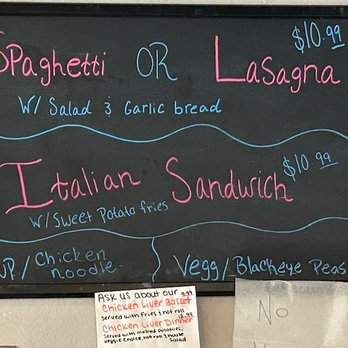 Spaghetti OR Lasagna $10.99
W/ Salad & Garlic bread
Italian Sandwich $10.99
W/ Sweet Potato fries
UP/ Chicken noodle
Vegg/ Blackeye Peas
Ask us about our
Chicken Liver Basket 9.99
served with Fries & hot roll
Chicken Liver Dinner
served with mashed potatoes,
veggie choice, hot roll & house
Salad
No